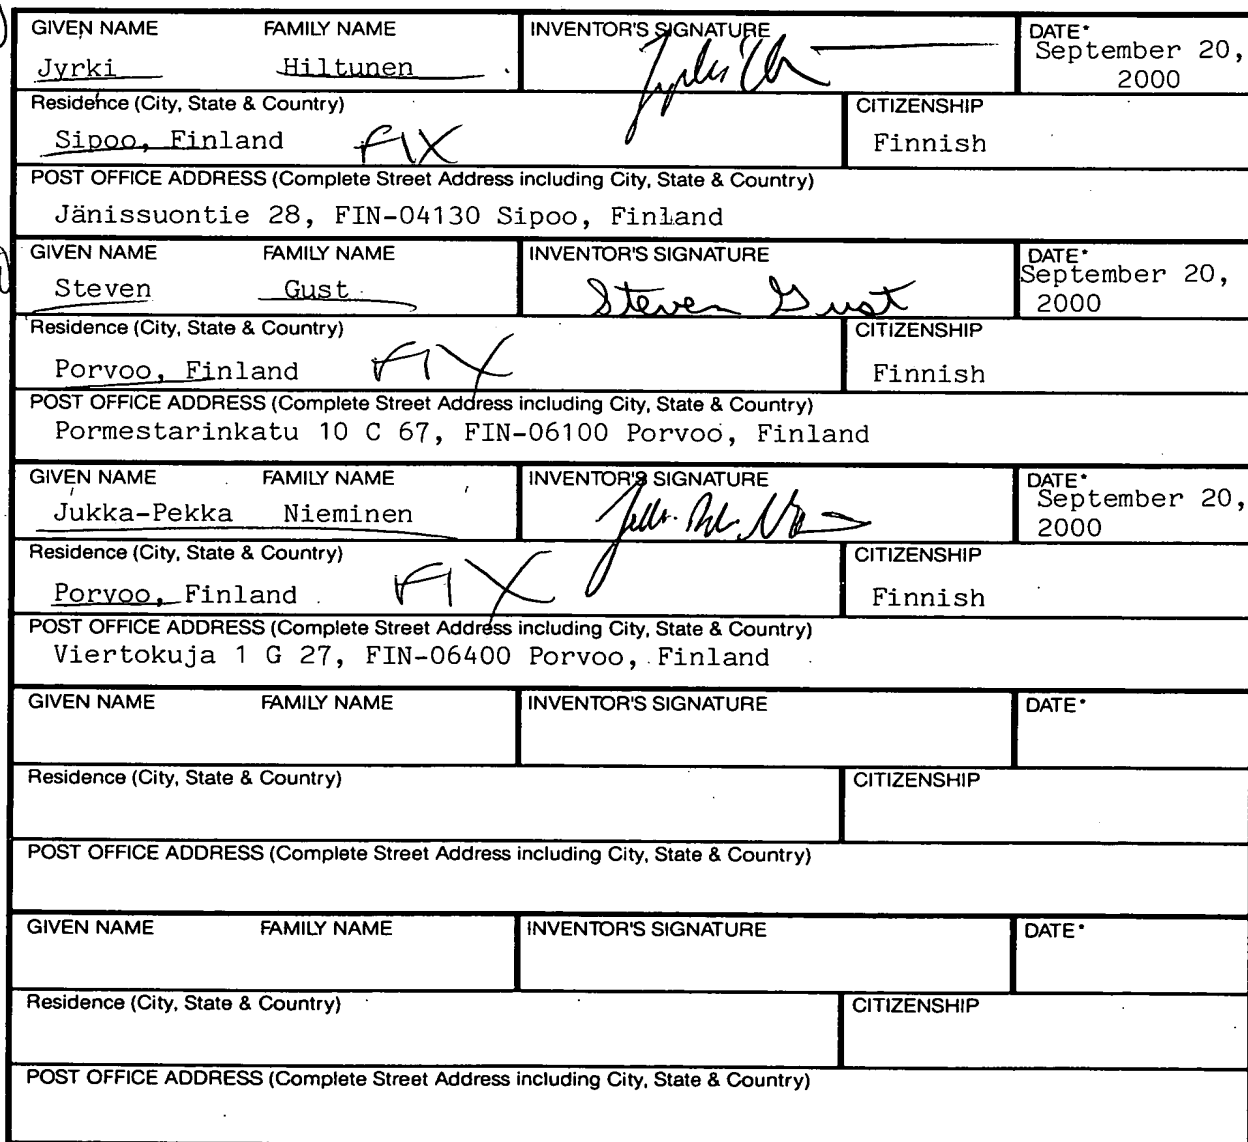 GIVEN NAME FAMILY NAME INVENTOR'S SIGNATURE DATE*
Jyrki Hiltunen September 20,
2000
Residence (City, State & Country) CITIZENSHIP
Sipoo, Finland FIX Finnish
POST OFFICE ADDRESS (Complete Street Address including City, State & Country)
Jänissuontie 28, FIN-04130 Sipoo, Finland
GIVEN NAME FAMILY NAME INVENTOR'S SIGNATURE DATE*
Steven Gust Steven Gust September 20,
2000
Residence (City, State & Country) CITIZENSHIP
Porvoo, Finland FIX Finnish
POST OFFICE ADDRESS (Complete Street Address including City, State & Country)
Pormestarinkatu 10 C 67, FIN-06100 Porvoo, Finland
GIVEN NAME FAMILY NAME INVENTOR'S SIGNATURE DATE*
Jukka-Pekka Nieminen September 20,
2000
Residence (City, State & Country) CITIZENSHIP
Porvoo, Finland FIX Finnish
POST OFFICE ADDRESS (Complete Street Address including City, State & Country)
Viertokuja 1 G 27, FIN-06400 Porvoo, Finland
GIVEN NAME FAMILY NAME INVENTOR'S SIGNATURE DATE*
Residence (City, State & Country) CITIZENSHIP
POST OFFICE ADDRESS (Complete Street Address including City, State & Country)
GIVEN NAME FAMILY NAME INVENTOR'S SIGNATURE DATE*
Residence (City, State & Country) CITIZENSHIP
POST OFFICE ADDRESS (Complete Street Address including City, State & Country)